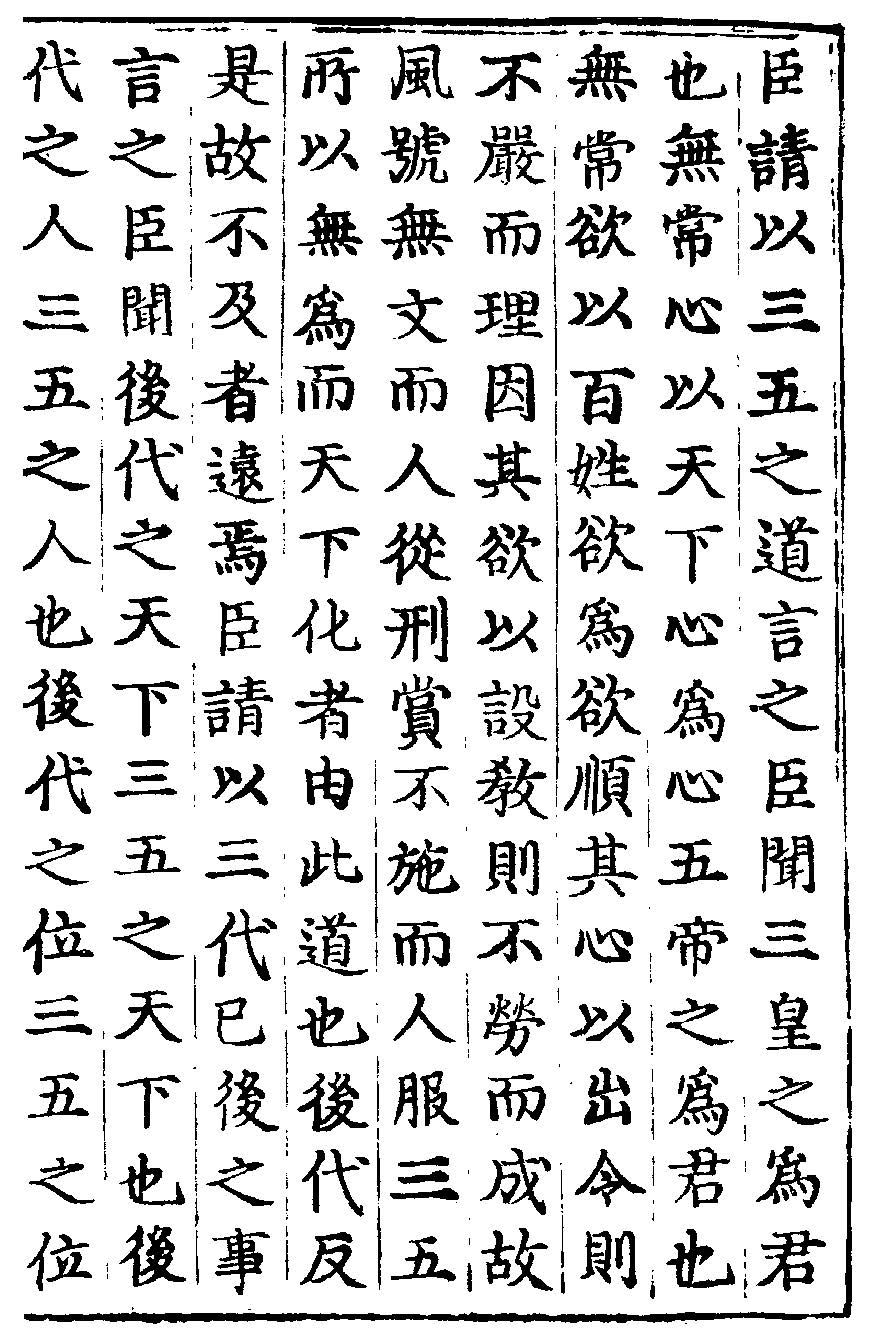 臣請以三五之道言之臣聞三皇之爲君
也無常心以天下心爲心五帝之爲君也
無常欲以百姓欲爲欲順其心以出令則
不嚴而理因其欲以設教則不勞而成故
風號無文而人從刑賞不施而人服三五
所以無爲而天下化者由此道也後代反
是故不及者遠焉臣請以三代已後之事
言之臣聞後代之天下三五之天下也後
代之人三五之人也後代之位三五之位